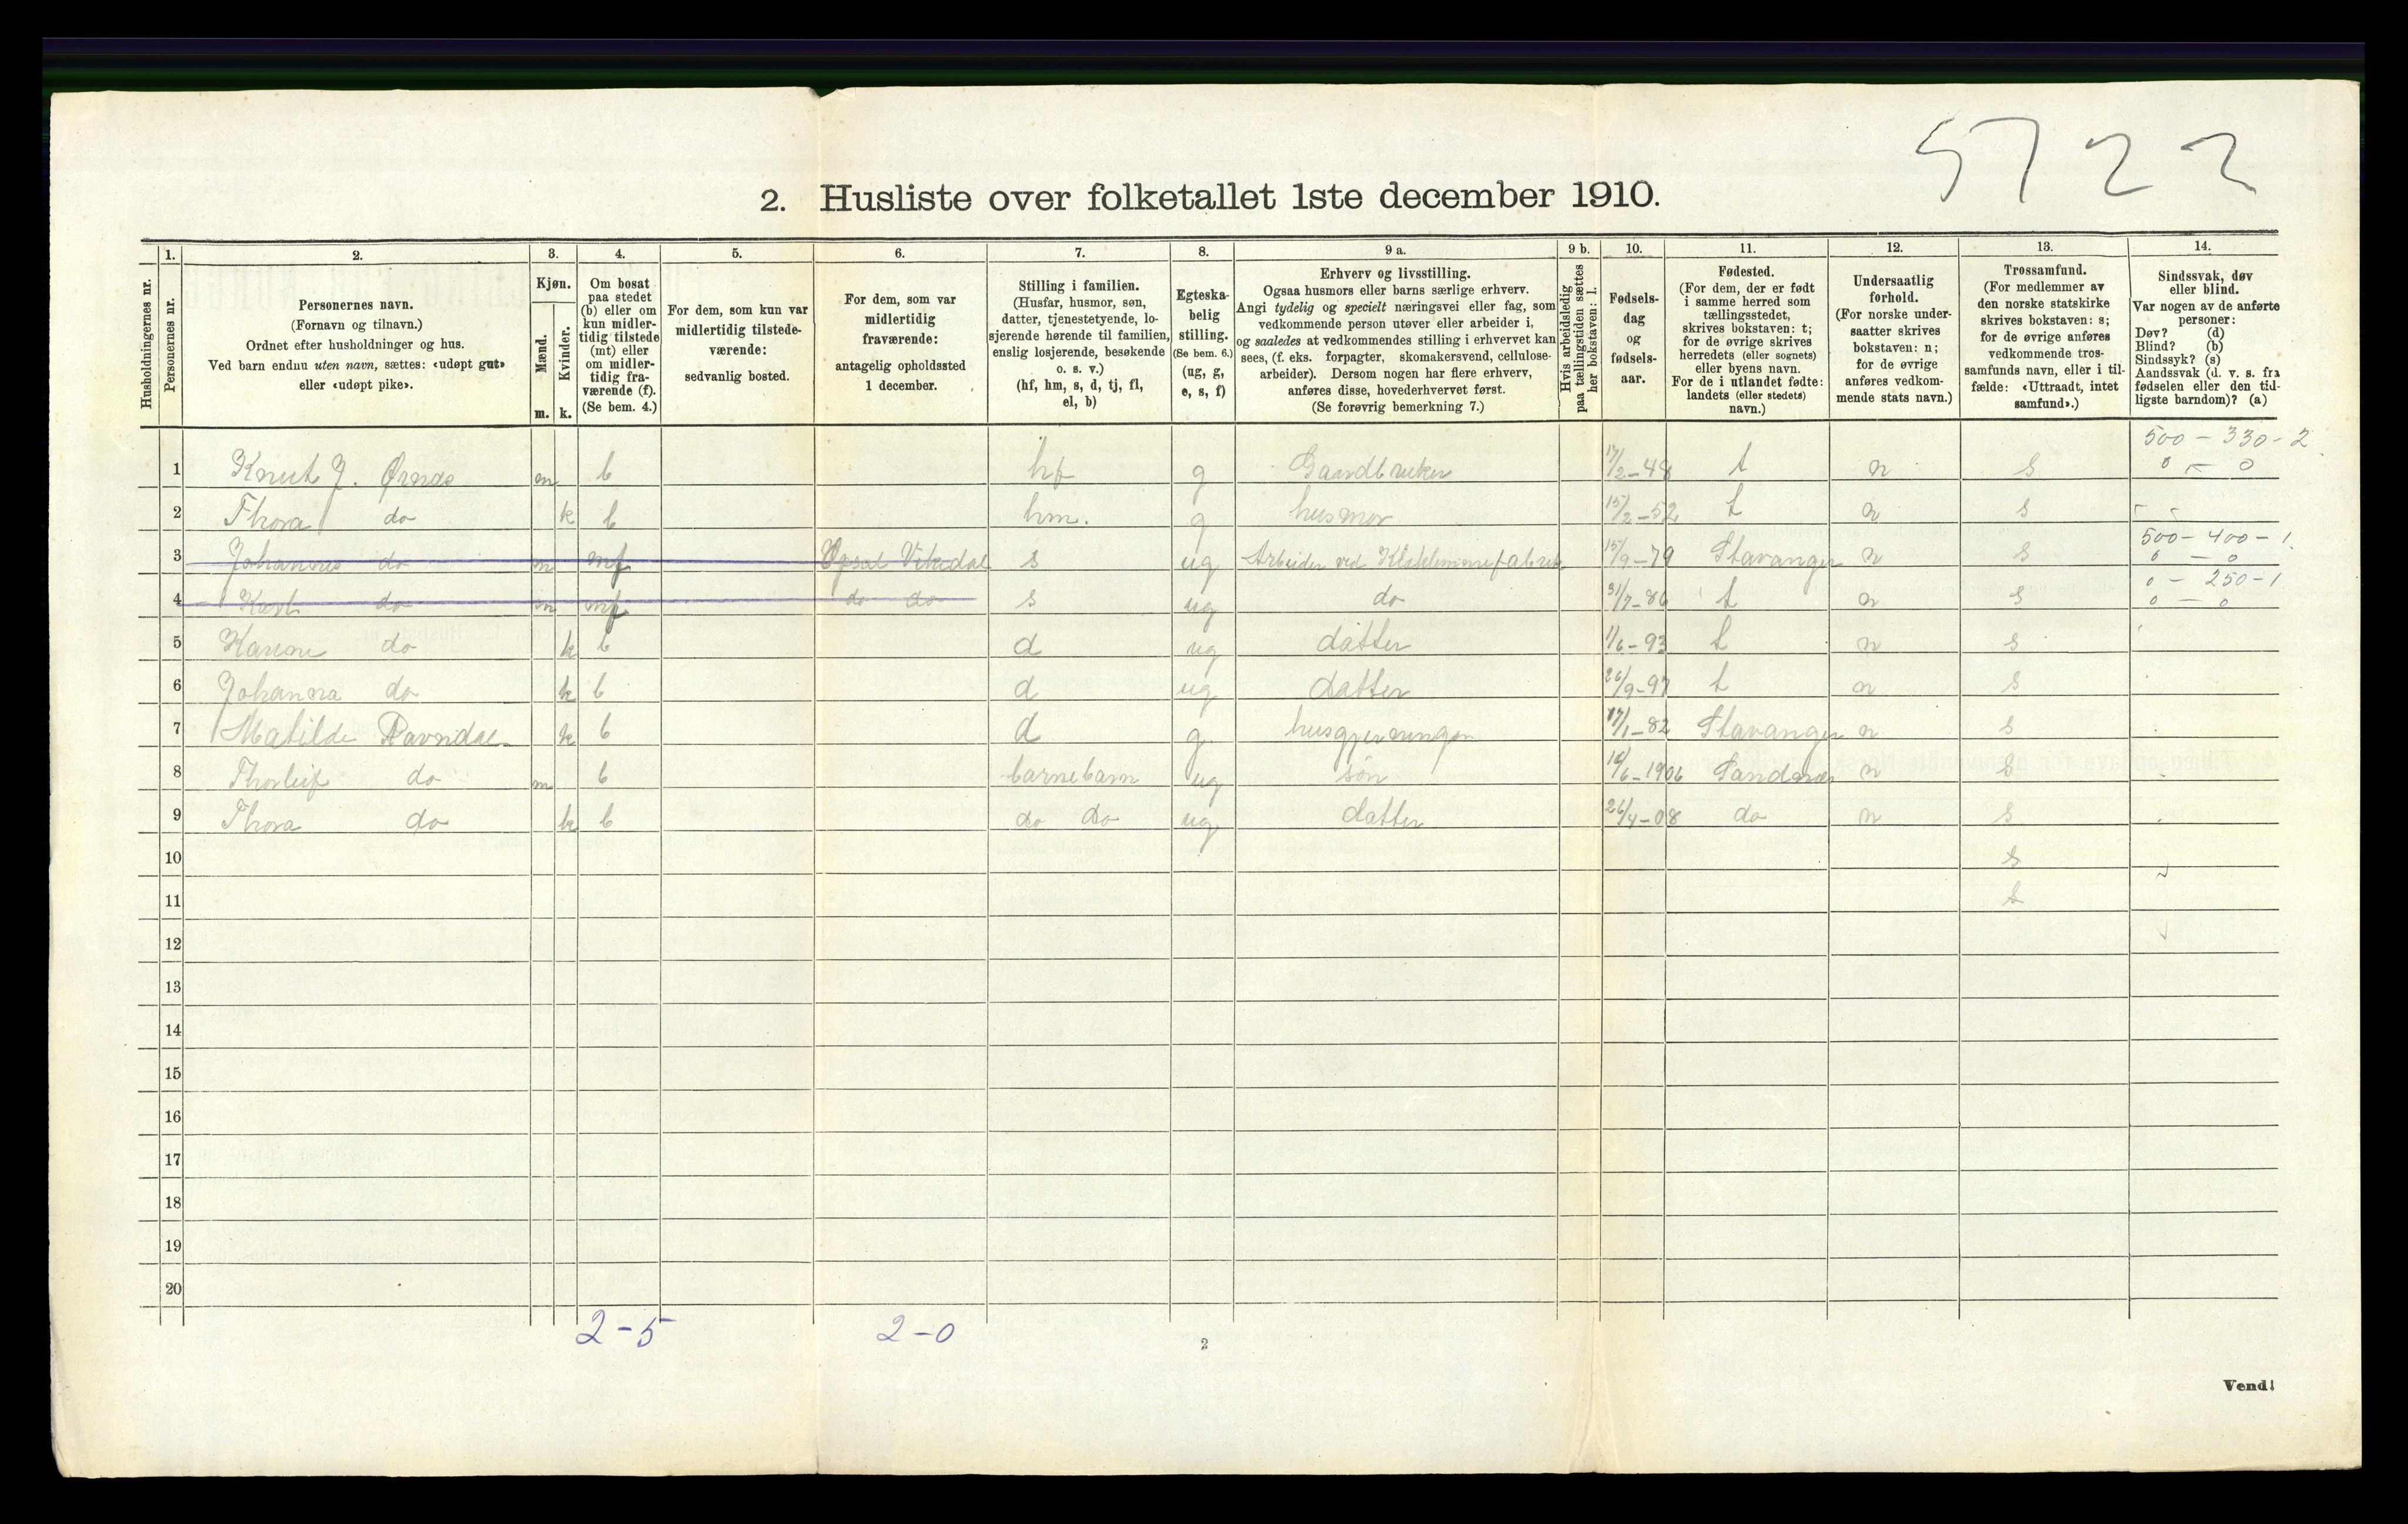 5722
2. Husliste over folketallet 1ste december 1910.
Husholdningernes nr.
1. Personernes nr.
2. Personernes navn.
(Fornavn og tilnavn.)
Ordnet efter husholdninger og hus.
Ved barn endnu uten navn, sættes: «udøpt gut»
eller «udøpt pike».
3. Kjøn.
Mænd. m.
Kvinder. k.
4. Om bosat
paa stedet
(b) eller om
kun midler-
tidig tilstede
(mt) eller
om midler-
tidig fra-
værende (f).
(Se bem. 4.)
5. For dem, som kun var
midlertidig tilstede-
værende:
sedvanlig bosted.
6. For dem, som var
midlertidig
fraværende:
antagelig opholdssted
1 december.
7. Stilling i familien.
(Husfar, husmor, søn,
datter, tjenestetyende, lo-
sjerende hørende til familien,
enslig losjerende, besøkende
o. s. v.)
(hf, hm, s, d, tj, fl,
el, b)
8. Egteska-
belig
stilling.
(Se bem. 6.)
(ug, g,
e, s, f)
9 a. Erhverv og livsstilling.
Ogsaa husmors eller barns særlige erhverv.
Angi tydelig og specielt næringsvei eller fag, som
vedkommende person utøver eller arbeider i,
og saaledes at vedkommendes stilling i erhvervet kan
sees, (f. eks. forpagter, skomakersvend, cellulose-
arbeider). Dersom nogen har flere erhverv,
anføres disse, hovederhvervet først.
(Se forøvrig bemerkning 7.)
9 b. Hvis arbeidsledig
paa tællingstiden sættes
her bokstaven: l.
10. Fødsels-
dag
og
fødsels-
aar.
11. Fødested.
(For dem, der er født
i samme herred som
tællingsstedet,
skrives bokstaven: t;
for de øvrige skrives
herredets (eller sognets)
eller byens navn.
For de i utlandet fødte:
landets (eller stedets)
navn.)
12. Undersaatlig
forhold.
(For norske under-
saatter skrives
bokstaven: n;
for de øvrige
anføres vedkom-
mende stats navn.)
13. Trossamfund.
(For medlemmer av
den norske statskirke
skrives bokstaven: s;
for de øvrige anføres
vedkommende tros-
samfunds navn, eller i til-
fælde: «Uttraadt, intet
samfund».)
14. Sindssvak, døv
eller blind.
Var nogen av de anførte
personer:
Døv? (d)
Blind? (b)
Sindssyk? (s)
Aandssvak (d. v. s. fra
fødselen eller den tid-
ligste barndom)? (a)
1 Knut J. Ørnes m b hf g Gaardbruker 17/2-48 t n s 500 - 330 - 2
0 - 0
2 Thora do k b hm. g husmor 15/2-52 t n s - -
3 Johannes do m mf Vikedal s ug Arbeider ved 15/9-79 Stavanger n s 500 - 400 - 1.
0 - 0
4 Karl do m mf do do s ug do 31/7-86 t n s 0 - 250 - 1
0 - 0
5 k b d ug datter 1/6-93 t n s
6 Johanna do k b d ug datter 26/9-97 t n s
7 Matilde Ravndal k b d g husgjerningen 17/1-82 Stavanger n s
8 Thorleif do m b barnebarn ug søn 16/6-1906 Sandnæs n s
9 Thora do k b do do ug datter 26/4-08 do n s
10 s
11
12
13
14
15
16
17
18
19
20
2-5
2-0
2
Vend!